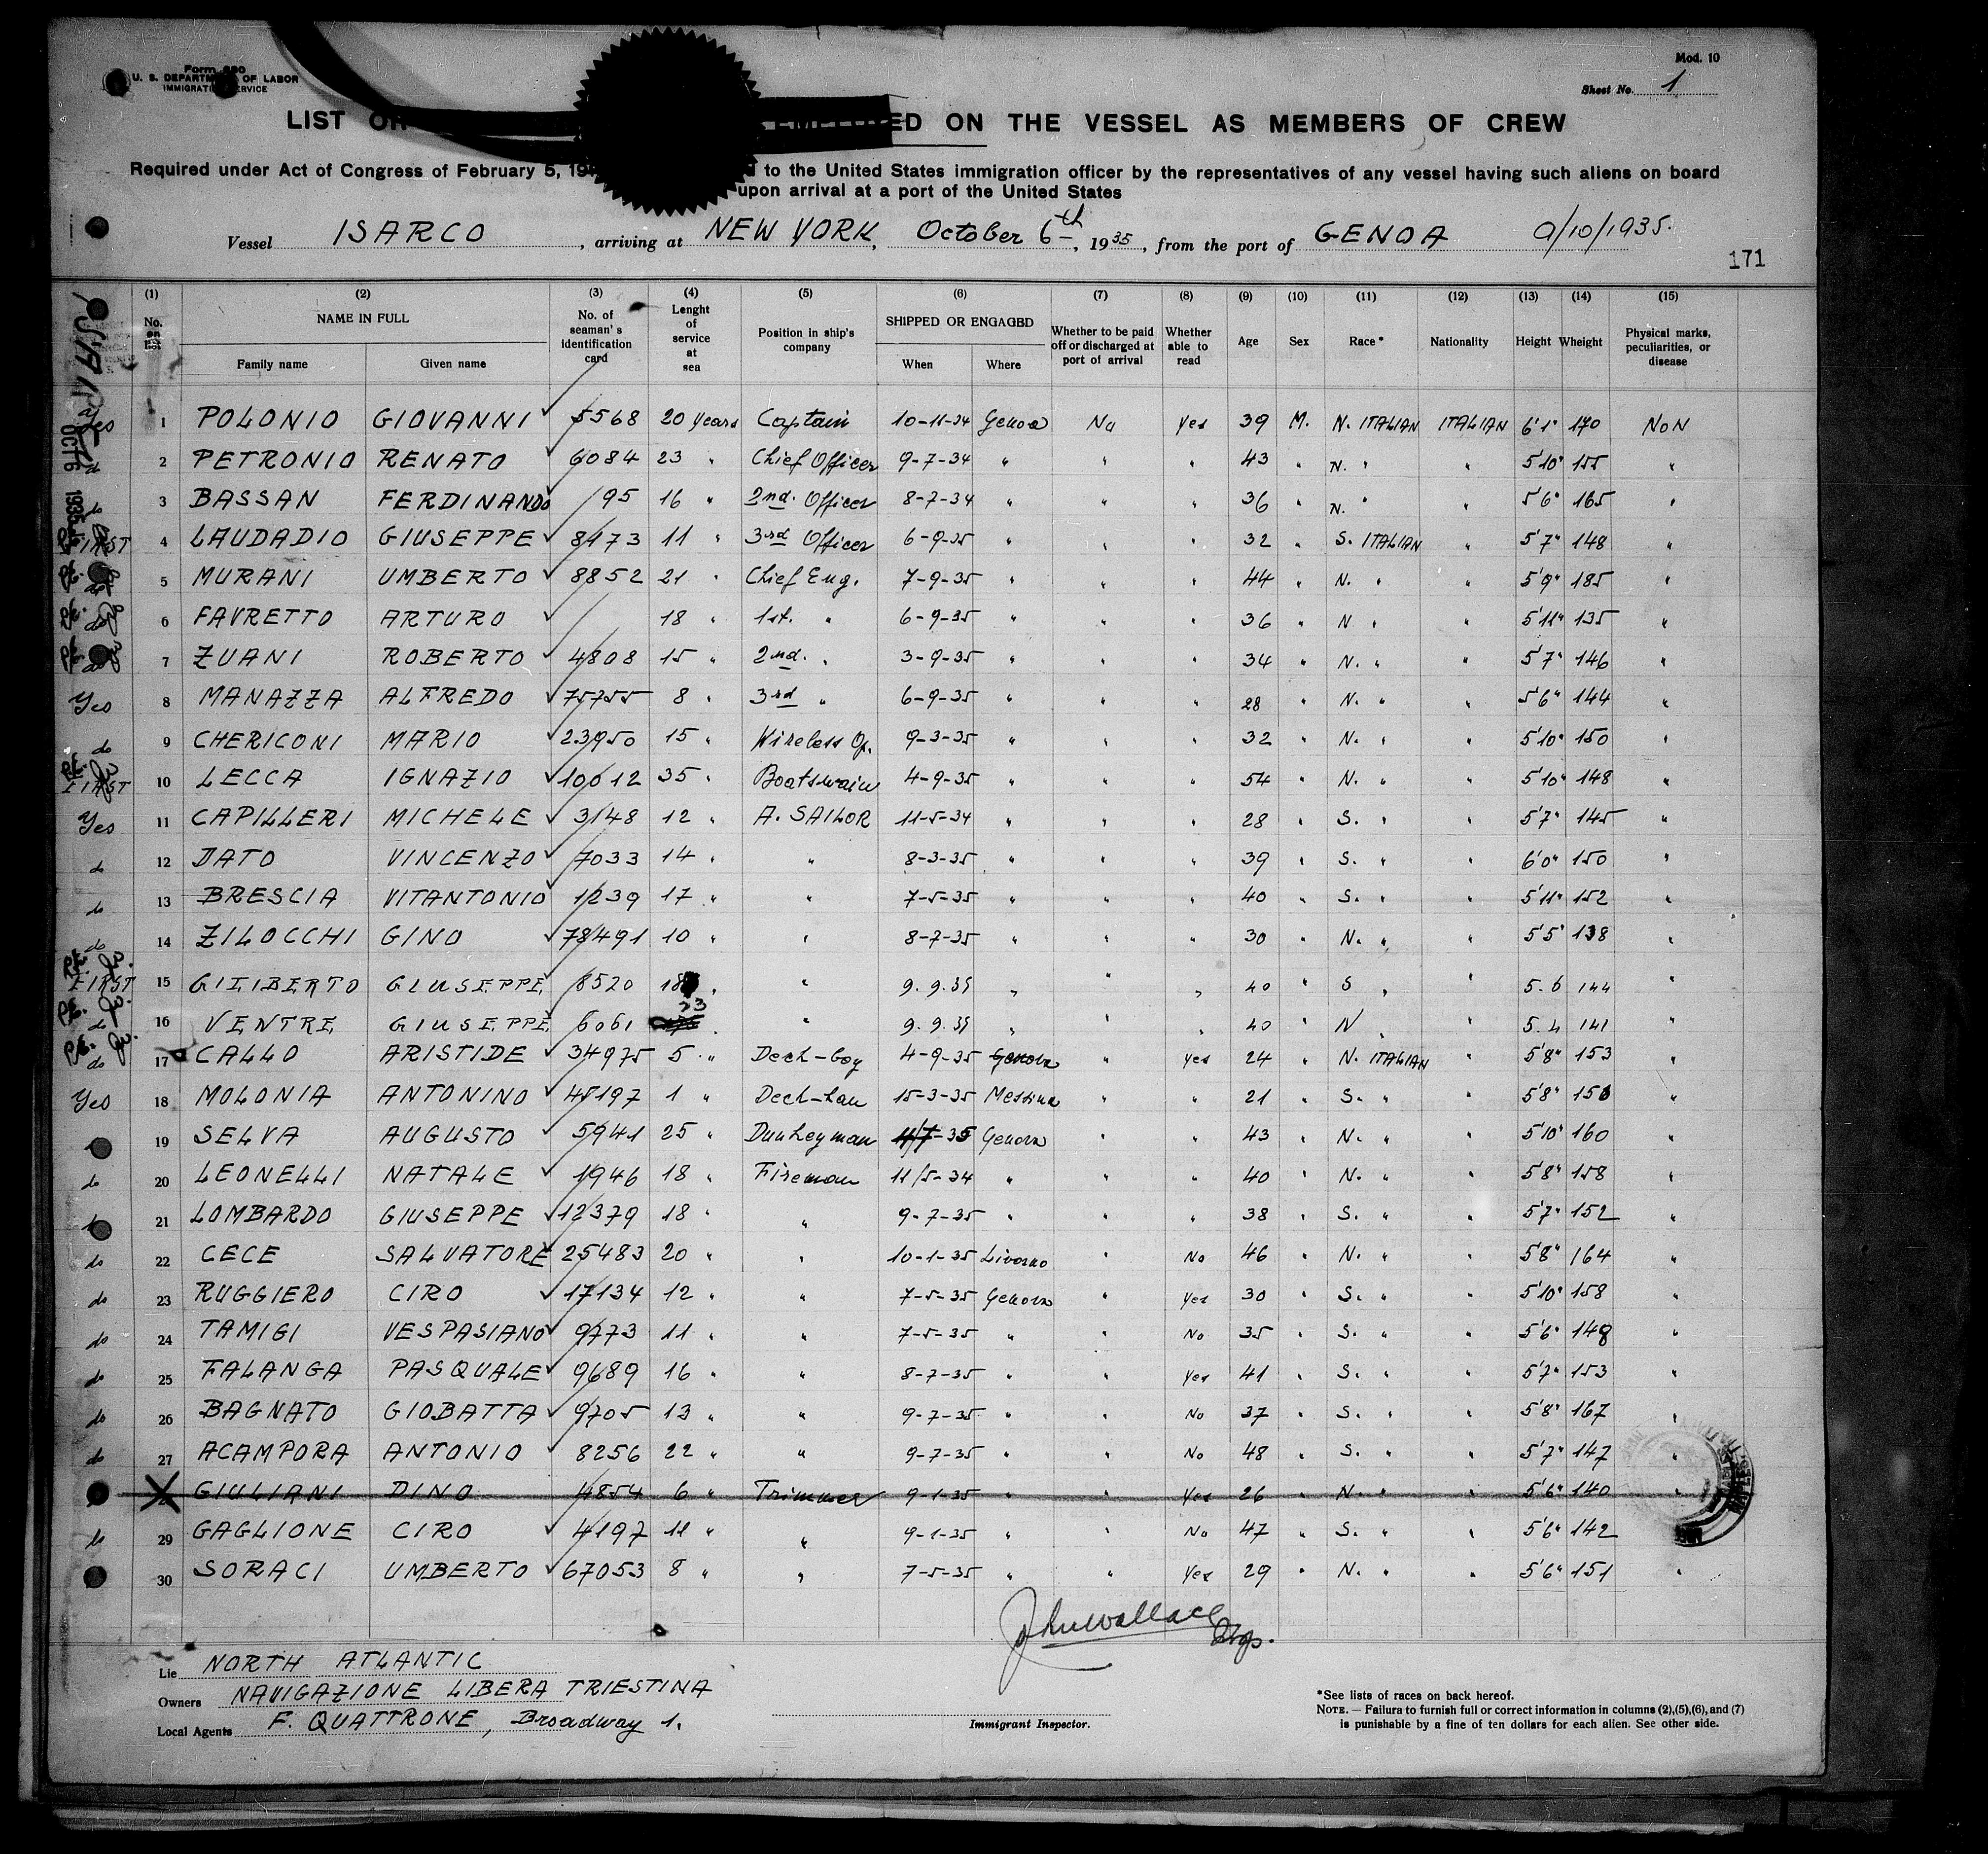 Mod. 10
U. S. DEPARTMENT OF LABOR
Sheet No. 1
IMMIGRATION SERVICE
LIST OF EMPLOYED ON THE VESSEL AS MEMBERS OF CREW
Required under Act of Congress of February 5, to the United States immigration officer by the representatives of any vessel having such aliens on board
upon arrival at a port of the United States
Vessel ISARCO, arriving at NEW YORK, October 6th, 1935, from the port of GENOA 9/10/1935.
171
(1) (2) (3) (4) (5) (6) (7) (8) (9) (10) (11) (12) (13) (14) (15)
No. on list NAME IN FULL Family name Given name No. of seaman's identification card Lenght of service at sea Position in ship's company SHIPPED OR ENGAGBD When Where Whether to be paid off or discharged at port of arrival Whether able to read Age Sex Race* Nationality Height Wheight Physical marks, peculiarities, or disease
Yes 1 POLONIO GIOVANNI 5568 20 years Captain 10-11-34 Genoa No Yes 39 M. N. ITALIAN ITALIAN 6'1" 170 NON
do 2 PETRONIO RENATO 6084 23 " Chief Officer 9-7-34 " " " 43 " N. " " 5'10" 155 "
do 3 BASSAN FERDINANDO 195 16 " 2nd. Officer 8-7-34 " " " 36 " N. " " 5'6" 165 "
FIRST 4 LAUDADIO GIUSEPPE 8473 11 " 3rd Officer 6-9-35 " " " 32 " S. ITALIAN " 5'7" 148 "
do 5 MURANI UMBERTO 8852 21 " Chief Eng. 7-9-35 " " " 44 " N. " " 5'9" 185 "
do 6 FAVRETTO ARTURO 18 " 1st. " 6-9-35 " " " 36 " N " " 5'11" 135 "
do 7 ZUANI ROBERTO 4808 15 " 2nd. " 3-9-35 " " " 34 " N. " " 5'7" 146 "
Yes 8 MANAZZA ALFREDO 75755 8 " 3rd " 6-9-35 " " " 28 " N. " " 5'6" 144 "
do 9 CHERICONI MARIO 23950 15 " Wireless Op. 9-3-35 " " " 32 " N. " " 5'10" 150 "
FIRST 10 LECCA IGNAZIO 10012 35 " Boatswain 4-9-35 " " " 54 " N. " " 5'10" 148 "
Yes 11 CAPILLERI MICHELE 3148 12 " A. SAILOR 11-5-34 " " " 28 " S. " " 5'7" 145 "
do 12 DATO VINCENZO 7033 14 " " 8-3-35 " " " 39 " S. " " 6'0" 150 "
do 13 BRESCIA VITANTONIO 1239 17 " " 7-5-35 " " " 40 " S. " " 5'11" 152 "
do 14 ZILOCCHI GINO 78491 10 " " 8-7-35 " " " 30 " N. " " 5'5" 138 "
FIRST 15 GILIBERTO GIUSEPPE 8520 18 " " 9.9.35 " " " 40 " S " " 5.6 144 "
do 16 VENTRE GIUSEPPE 6061 23 " " 9.9.35 " " " 40 " N " " 5.4 141 "
do 17 CALLO ARISTIDE 34975 5 " Deck-boy 4-9-35 Genova " Yes 24 " N. ITALIAN " 5'8" 153 "
Yes 18 MOLONIA ANTONINO 45197 1 " 15-3-35 Messina " " 21 " S. " " 5'8" 150 "
19 SELVA AUGUSTO 5941 25 " Dunkeyman 35 Genova " " 43 " N. " " 5'10" 160 "
do 20 LEONELLI NATALE 1946 18 " Fireman 11/5-34 " " " 40 " N. " " 5'8" 158 "
21 LOMBARDO GIUSEPPE 12379 18 " " 9-7-35 " " " 38 " S. " " 5'7" 152 "
do 22 CECE SALVATORE 25483 20 " " 10-1-35 Livorno " No 46 " N. " " 5'8" 164 "
do 23 RUGGIERO CIRO 17134 12 " " 7-5-35 Genova " Yes 30 " S. " " 5'10" 158 "
do 24 TAMIGI VESPASIANO 9773 11 " " 7-5-35 " " No 35 " S. " " 5'6" 148 "
do 25 FALANGA PASQUALE 9689 16 " " 8-7-35 " " Yes 41 " S. " " 5'7" 153 "
do 26 BAGNATO GIOBATTA 9705 13 " " 9-7-35 " " No 37 " S. " " 5'8" 167 "
do 27 ACAMPORA ANTONIO 8256 22 " " 9-7-35 " " No 48 " S. " " 5'7" 147 "
GIULIANI DINO 4854 6 " Trimmer 9-1-35 " " Yes 26 " N. " " 5'6" 140 "
do 29 GAGLIONE CIRO 4197 11 " " 9-1-35 " " No 47 " S. " " 5'6" 142 "
30 SORACI UMBERTO 67053 8 " " 7-5-35 " " Yes 29 " N. " " 5'6" 151 "
OCT 6 1935
John Wallace
Lie NORTH ATLANTIC
Owners NAVIGAZIONE LIBERA TRIESTINA
Local Agents F. QUATTRONE, Broadway 1.
Immigrant Inspector.
*See lists of races on back hereof.
NOTE. — Failura to furnish full or correct information in columns (2),(5),(6), and (7)
is punishable by a fine of ten dollars for each alien. See other side.